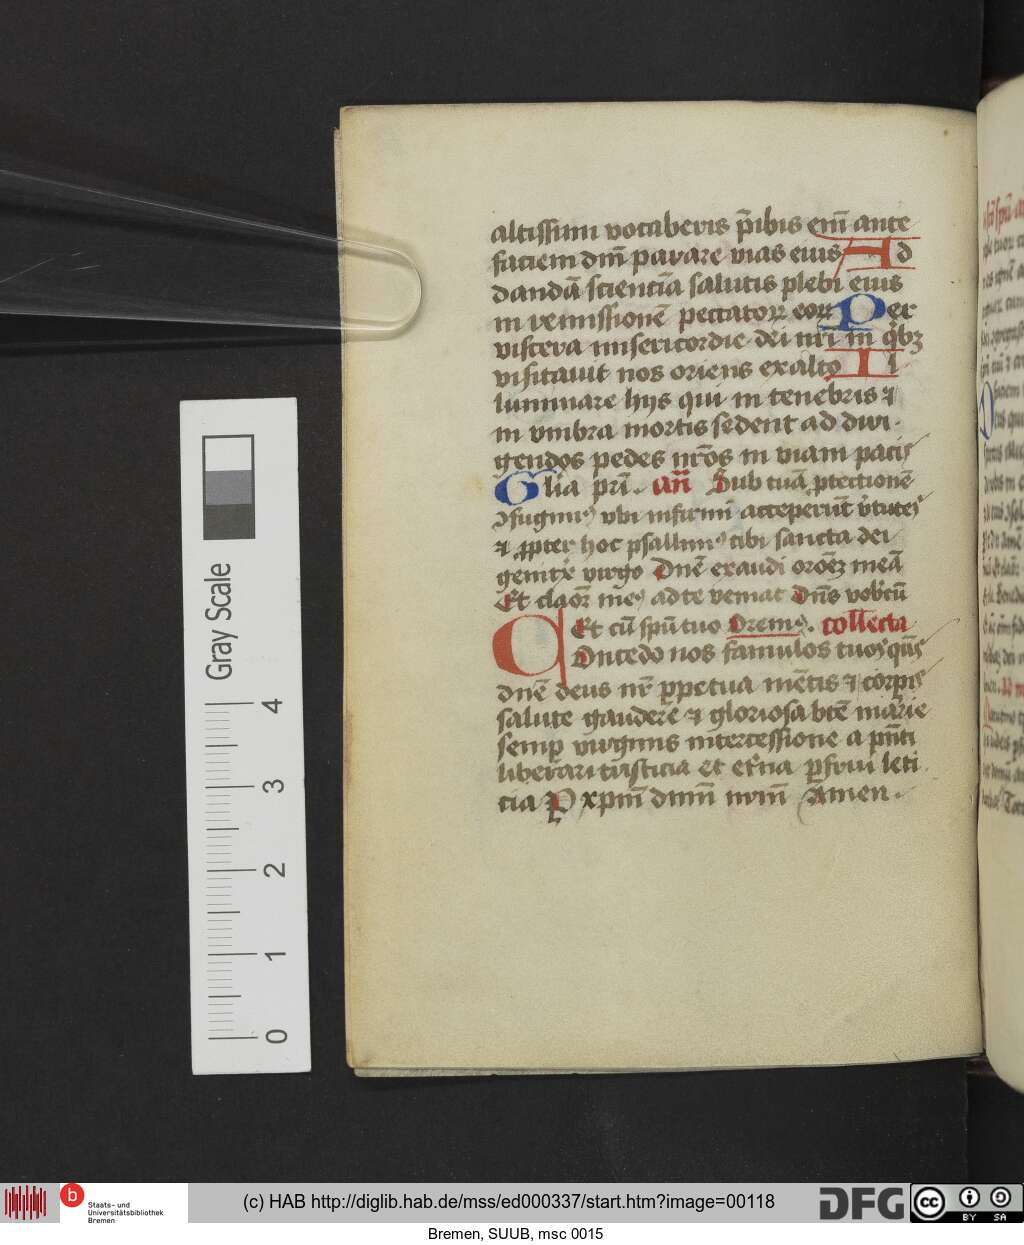 altissimi vocaberis p̄ibis em̄ ante
faciem dm̄ parare vias eius Ad
dandā scienciā salutis plebi eius
in remissionē peccatoꝝ eoꝝ Per
viscera misericordie dei nr̄i in qͥbꝫ
visitauit nos oriens ex alto Il
luminare hijs qui in tenebris ⁊
in vmbra mortis sedent ad diri
gendos pedes nr̄os in viam pacis
Glīa pr̄i. an̄ Sub tuā ꝓtectionē
ↄfugimꝰ vbi infirmi acceperūt v̓tutes
⁊ ꝓpter hoc psallimꝰ tibi sancta dei
genitx̄ virgo Dn̄e exaudi oroēꝫ meā
Et claoꝝ meꝰ ad te veniat Dn̄s vobcū
Et cū spū tuo Oremꝰ. collecta
Concede nos famulos tuos qūs
dn̄e deus nr̄ ꝑpetua mētis ⁊ corpis
salute gaudere ⁊ gloriosa btē marie
semꝑ virginis intercessione a pn̄ti
liberari tristicia et et̓na ꝑfrui leti
cia P xpm̄ dnm̄ nrm̄ Amen.
Gray Scale
4
3
2
1
0
b
Staats- und
Universitätsbibliothek
Bremen
(c) HAB http://diglib.hab.de/mss/ed000337/start.htm?image=00118
DFG
cc
BY SA
Bremen, SUUB, msc 0015